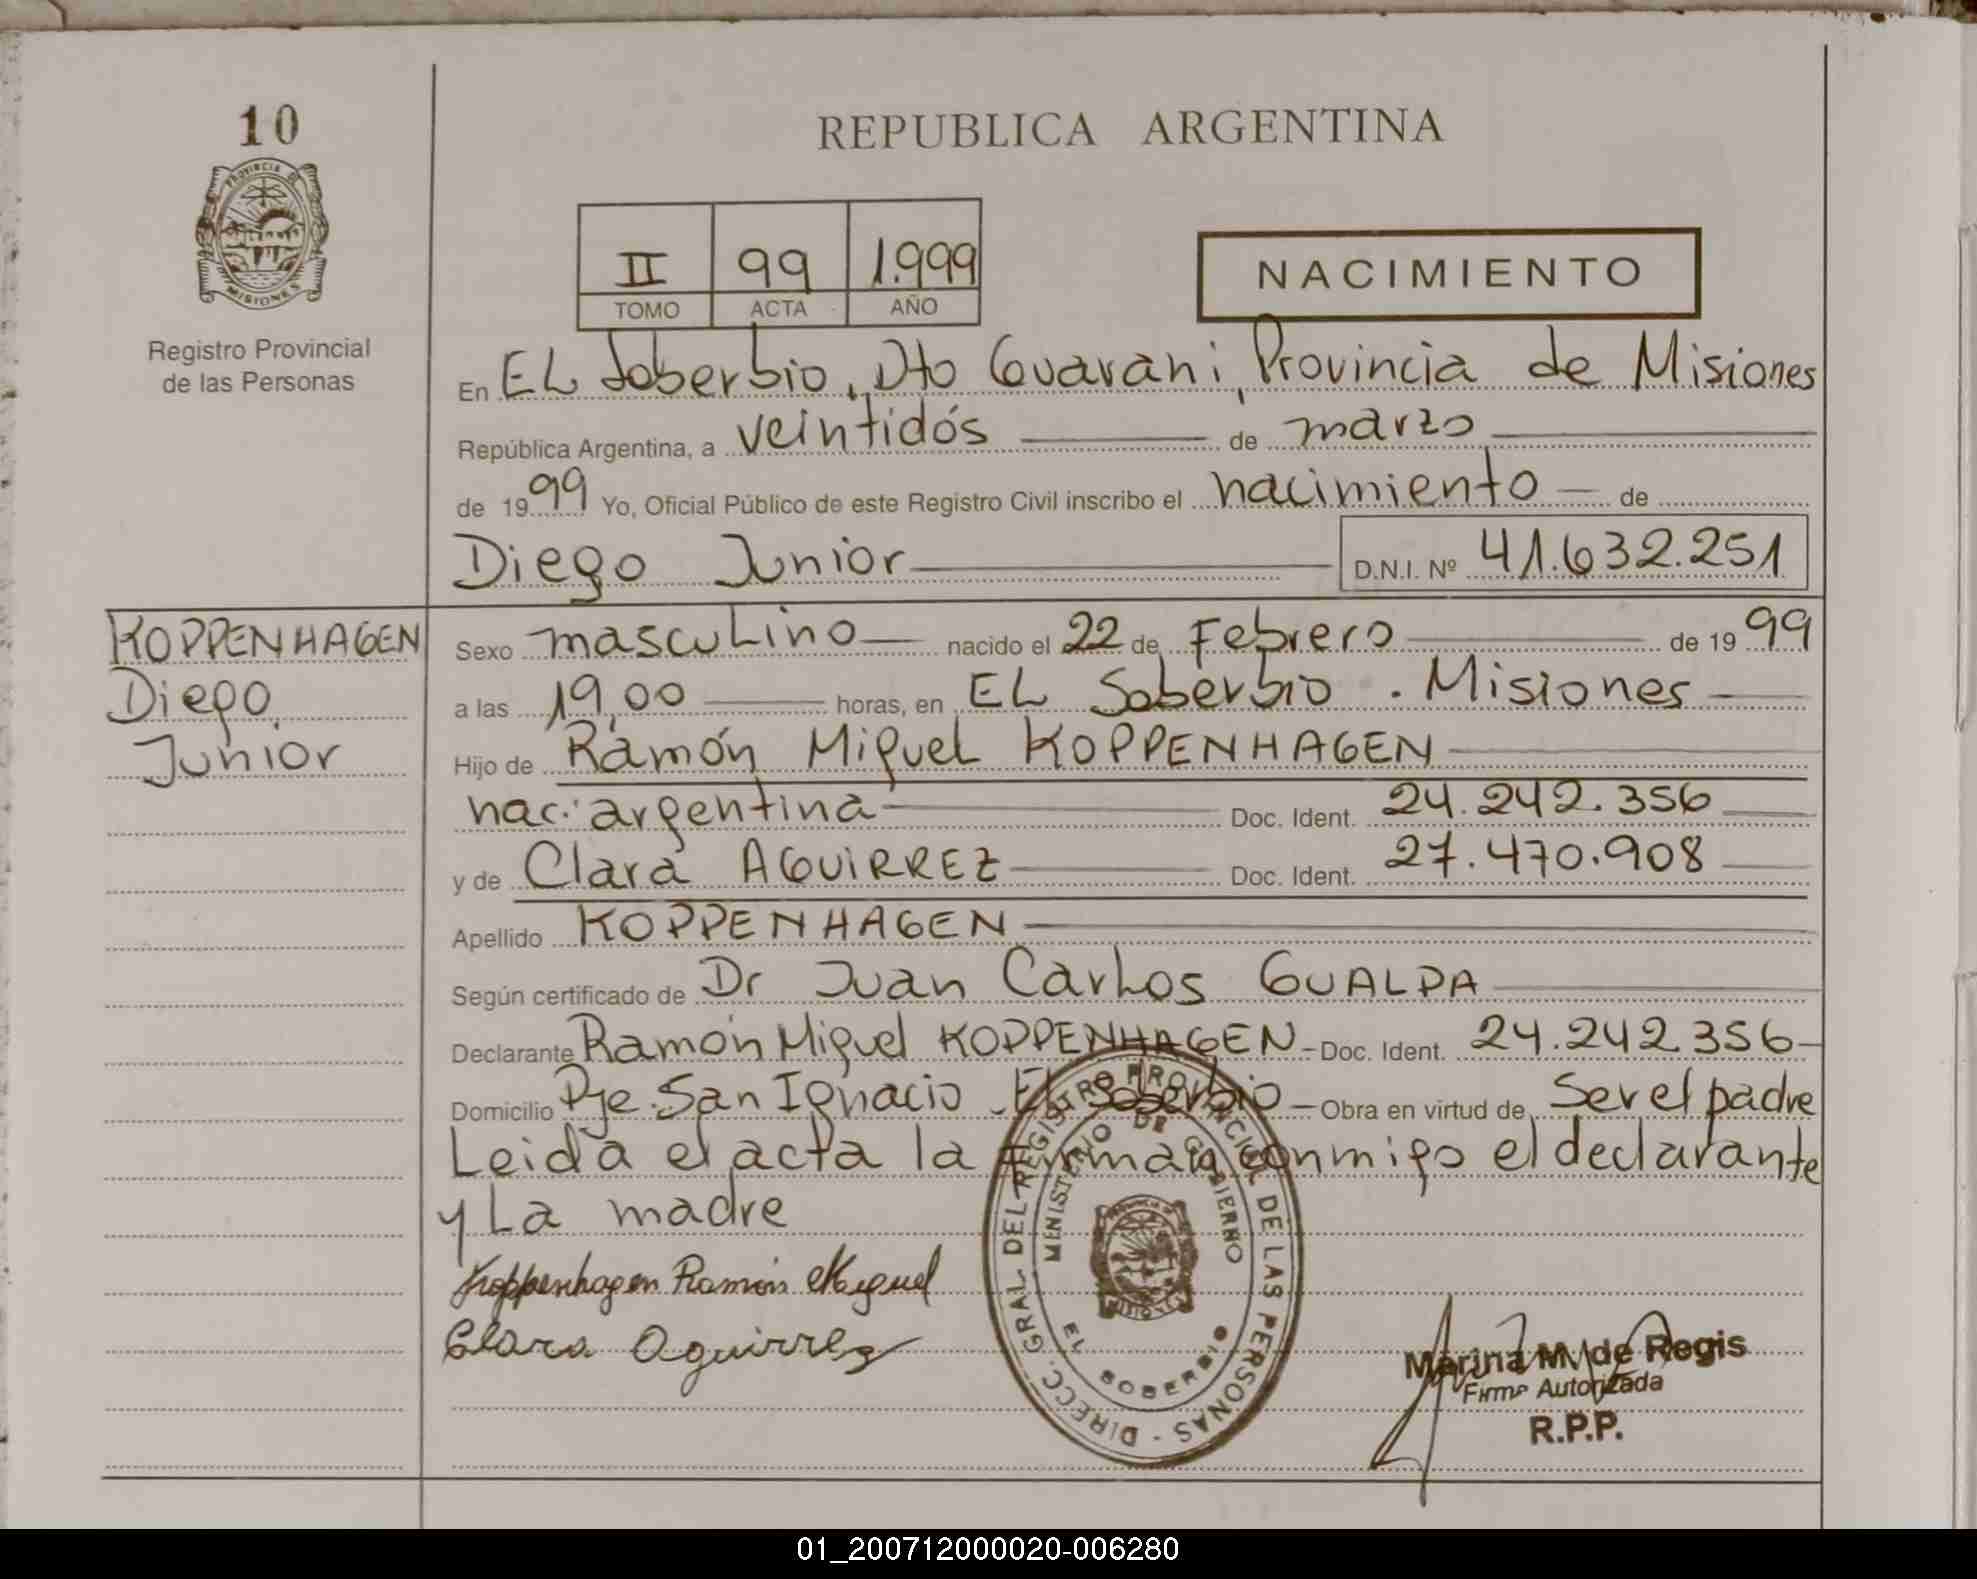 10
PROVINCIA DE
MISIONES
Registro Provincial
de las Personas
REPUBLICA ARGENTINA
II 99 1.999
TOMO ACTA AÑO
NACIMIENTO
En EL Soberbio, Dto Guarani, Provincia de Misiones
República Argentina, a veintidós de marzo
de 1999 Yo, Oficial Público de este Registro Civil inscribo el nacimiento de
Diego Junior D.N.I. Nº 41.632.251
KOPPENHAGEN
Diego
Junior
Sexo masculino nacido el 22 de Febrero de 1999
a las 19,00 horas, en EL Soberbio . Misiones
Hijo de Ramón Miguel KOPPENHAGEN
nac: argentina Doc. Ident. 24.242.356
y de Clara AGUIRREZ Doc. Ident. 27.470.908
Apellido KOPPENHAGEN
Según certificado de Dr Juan Carlos GUALDA
Declarante Ramón Miguel KOPPENHAGEN - Doc. Ident. 24.242.356
Domicilio Pje. San Ignacio . El Soberbio - Obra en virtud de Ser el padre
Leida el acta la firman conmigo el declarante
y La madre
Koppenhagen Ramón Miguel
Clara Aguirrez
DIRECC. GRAL. DEL REGISTRO PROVINCIAL DE LAS PERSONAS -
MINISTERIO DE GOBIERNO
MISIONES
EL SOBERBIO
Marina M. de Regis
Firma Autorizada
R.P.P.
01_200712000020-006280